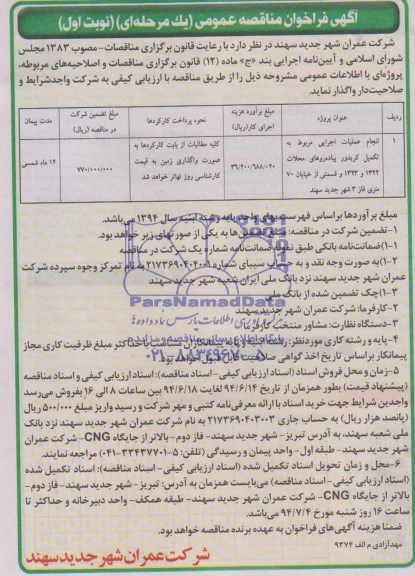 آگهی فراخوان مناقصه عمومی (یک مرحله‌ای) (نوبت اول)
شرکت عمران شهر جدید سهند در نظر دارد با رعایت قانون برگزاری مناقصات- مصوب ۱۳۸۳ مجلس
شورای اسلامی و آیین‌نامه اجرایی بند «ج» ماده (۱۲) قانون برگزاری مناقصات و اصلاحیه‌های مربوطه،
پروژه‌ای با اطلاعات عمومی مشروحه ذیل را از طریق مناقصه با ارزیابی کیفی به شرکت واجدشرایط و
صلاحیت‌دار واگذار نماید.
ردیف
عنوان پروژه
مبلغ برآورد هزینه اجرای کار(ریال)
نحوه پرداخت کارکردها
مبلغ تضمین شرکت در مناقصه (ریال)
مدت پیمان
۱
انجام عملیات اجرایی مربوط به
تکمیل کریدور پیاده‌روهای محلات
۱۳۲۲ و ۱۳۲۳ و قسمتی از خیابان ۷۰
متری فاز ۳ شهر جدید سهند
۳۶/۲۰۰/۶۸۸/۰۲۰
کلیه مطالبات از بابت کارکردها به
صورت واگذاری زمین به قیمت
کارشناسی روز تهاتر خواهد شد
۷۷۰/۰۰۰/۰۰۰
۱۲ ماه شمسی
مبلغ برآوردها براساس فهرست بهای واحد پایه رشته ابنیه سال ۱۳۹۴ می‌باشد.
۱-تضمین شرکت در مناقصه: مبلغ تضمین‌ها به یکی از صورتهای زیر خواهد بود.
۱-۱)ضمانت‌نامه بانکی طبق نمونه ضمانت‌نامه شماره یک شرکت در مناقصه
۲-۱)به صورت وجه نقد و به حساب سیبای شماره ۲۱۷۳۶۹۰۴۰۴۰۰۱ به نام تمرکز وجوه سپرده شرکت
عمران شهر جدید سهند نزد بانک ملی ایران شعبه شهر جدید سهند
۳-۱)چک تضمین شده از بانک ملی
۲-کارفرما: شرکت عمران شهر جدید سهند
۳-دستگاه نظارت: مشاور منتخب کارفرما
۴-پایه و رشته کاری موردنظر: رشته ابنیه و پایه پیمانکاران متناسب با حداکثر مبلغ ظرفیت کاری مجاز
پیمانکار براساس تاریخ اخذ گواهی صلاحیت قابل قبول خواهد بود.
۵-زمان و محل فروش اسناد (اسناد ارزیابی کیفی- اسناد مناقصه): اسناد ارزیابی کیفی و اسناد مناقصه
(پیشنهاد قیمت) بطور همزمان از تاریخ ۹۴/۶/۱۴ لغایت ۹۴/۶/۱۸ بین ساعات ۸ الی ۱۶ بفروش می‌رسد
واجدین شرایط جهت خرید اسناد با ارائه معرفی‌نامه کتبی و مهر شرکت و رسید واریز مبلغ ۵۰۰/۰۰۰ ریال
(پانصد هزار ریال) به حساب جاری ۲۱۷۳۶۹۰۴۰۳۰۰۳ به نام شرکت عمران شهر جدید سهند نزد بانک
ملی شعبه سهند، به آدرس تبریز- شهر جدید سهند- فاز دوم- بالاتر از جایگاه CNG- شرکت عمران
شهر جدید سهند- طبقه اول- واحد پیمان و رسیدگی (تلفن: ۵-۳۳۴۳۷۷۰۱-۰۴۱) مراجعه نمایند.
۶-محل و زمان تحویل اسناد تکمیل شده (اسناد ارزیابی کیفی- اسناد مناقصه): اسناد تکمیل شده
(اسناد ارزیابی کیفی- اسناد مناقصه) می‌بایست همزمان به آدرس: تبریز- شهر جدید سهند- فاز دوم-
بالاتر از جایگاه CNG- شرکت عمران شهر جدید سهند- طبقه همکف- واحد دبیرخانه و حداکثر تا
ساعت ۱۶ روز شنبه مورخ ۹۴/۷/۴ می‌باشد.
ضمنا هزینه آگهی‌های فراخوان به عهده برنده مناقصه خواهد بود.
مهدآزادی م الف ۹۳۷۴
شرکت عمران شهر جدید سهند
ParsNamadData
پایگاه اطلاع رسانی مناقصه و مزایده
۰۲۱-۸۸۳۴۹۶۷۰-۵